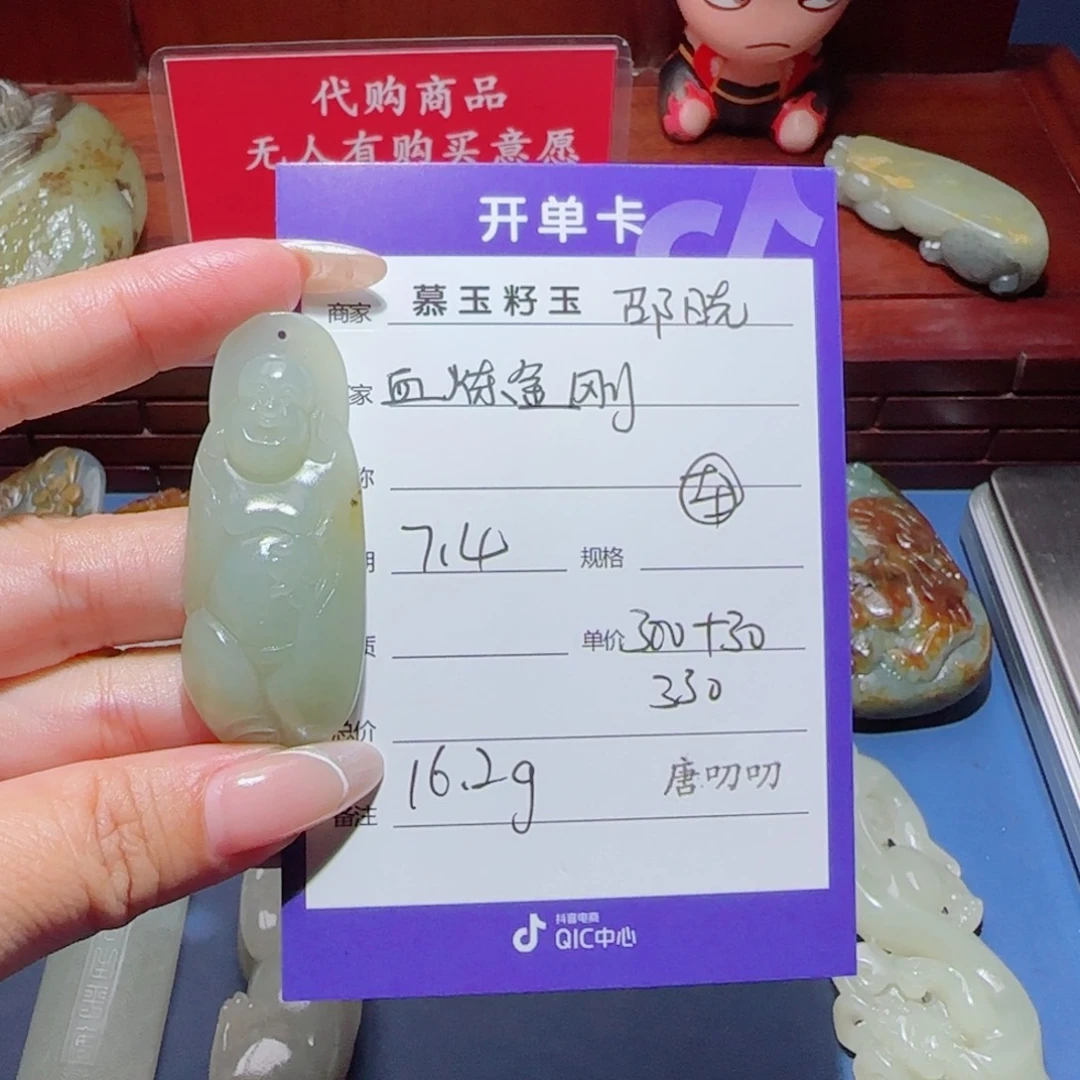 代购商品
无人有购买意愿
开单卡
商家 慕玉籽玉 邵晓
家 血炼金刚
称 车
期 7.4 规格
质 单价 300+30
330
总价
16.2g 唐叨叨
备注
抖音电商
QIC中心